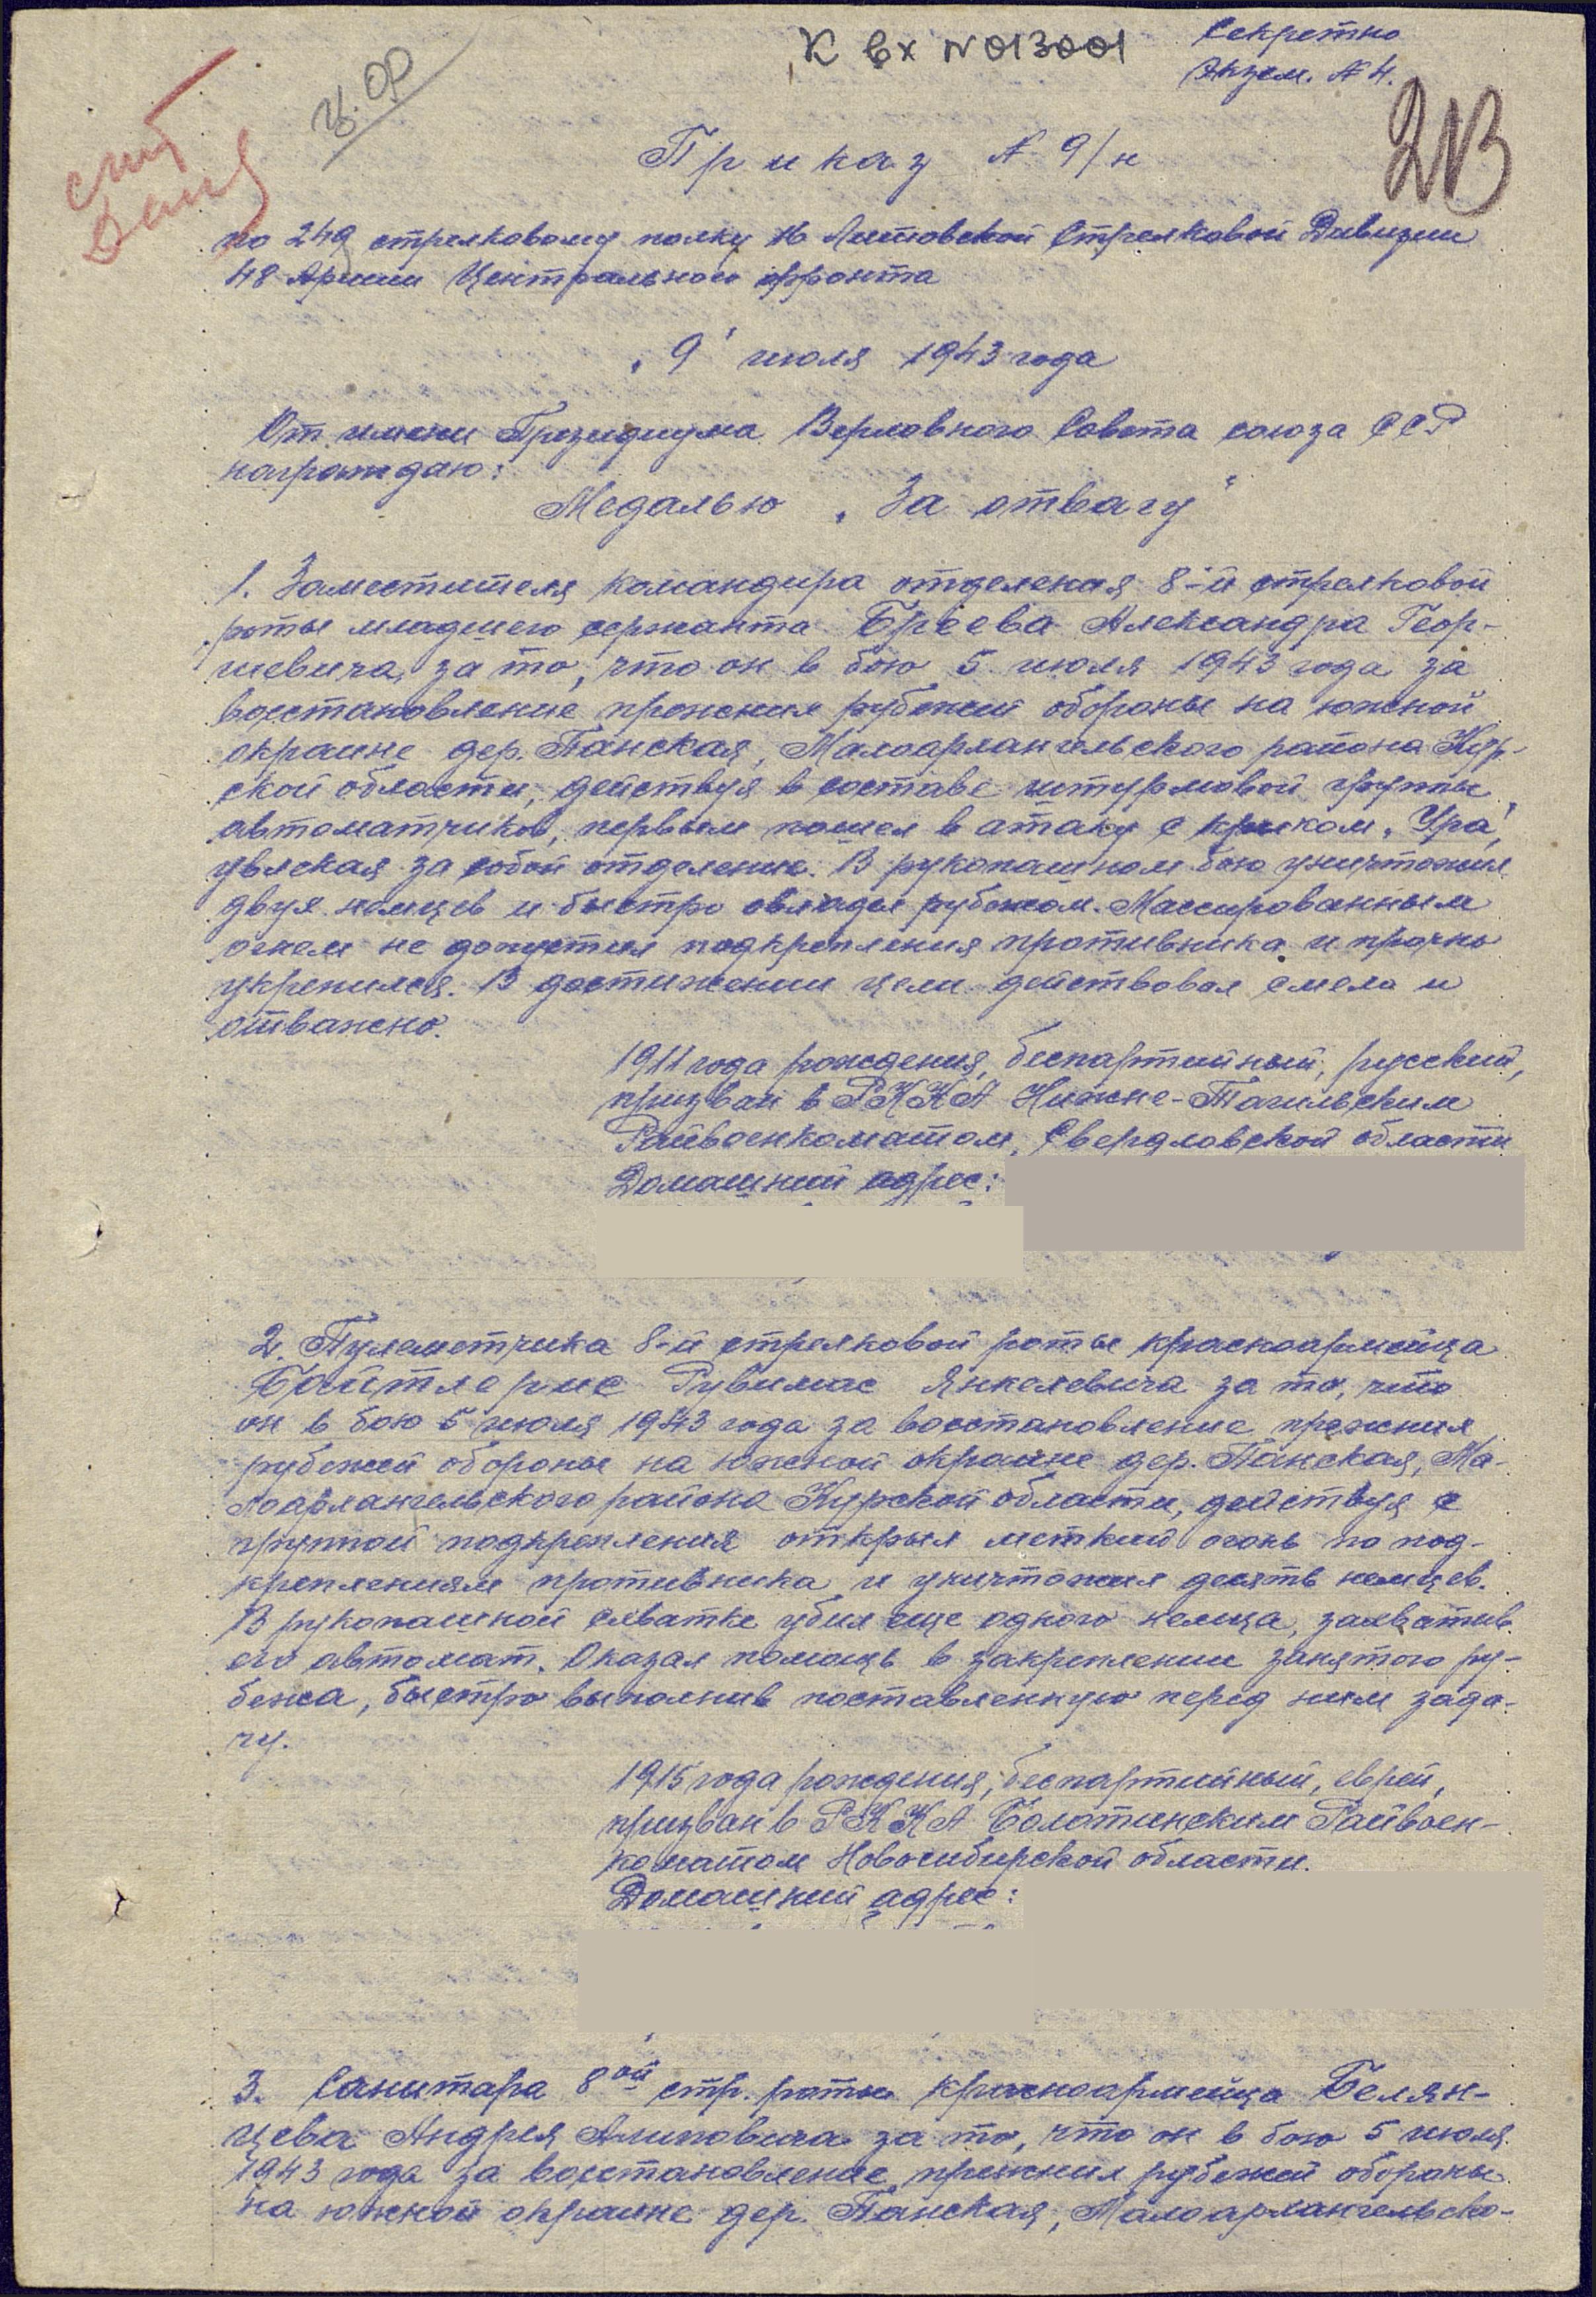 К вх №013001
Секретно
Экзем. № 4.
213
Приказ № 9/н
по 249 стрелковому полку 16 Литовской Стрелковой Дивизии
48 Армии Центрального фронта
„9" июля 1943 года
От имени Президиума Верховного Совета союза ССР
награждаю:
Медалью „За отвагу"
1. Заместителя командира отделения 8-й стрелковой
роты младшего сержанта Александра Геор-
гиевича, за то, что он в бою 5 июля 1943 года за
восстановление прежних рубежей обороны на южной
окраине дер. Панская, Малоархангельского района Кур-
ской области, действуя в составе штурмовой группы
автоматчиков, первым пошел в атаку с криком „Ура",
увлекая за собой отделение. В рукопашном бою уничтожил
двух немцев и быстро овладел рубежом. Массированным
огнем не допустил подкрепления противника и прочно
укрепился. В достижении цели действовал смело и
отважно.
1911 года рождения, беспартийный, русский,
призван в РККА Нижне-Тагильским
Райвоенкоматом, Свердловской области
Домашний адрес:
2. Пулеметчика 8-й стрелковой роты красноармейца
Байтлерис Рувимас Янкелевича за то, что
он в бою 5 июля 1943 года за восстановление прежних
рубежей обороны на южной окраине дер. Панская, Ма-
лоархангельского района Курской области, действуя с
группой подкрепления открыл меткий огонь по под-
креплениям противника и уничтожил десять немцев.
В рукопашной схватке убил еще одного немца, захватив
его автомат. Оказал помощь в закреплении занятого ру-
бежа, быстро выполнив поставленную перед ним зада-
чу.
1915 года рождения, беспартийный, еврей,
призван в РККА Болотинским Райвоен-
коматом Новосибирской области.
Домашний адрес:
3. Санитара 8ой стр. роты красноармейца Белян-
цева Андрея за то, что он в бою 5 июля
1943 года за восстановление прежних рубежей обороны
на южной окраине дер. Панская, Малоархангельско-